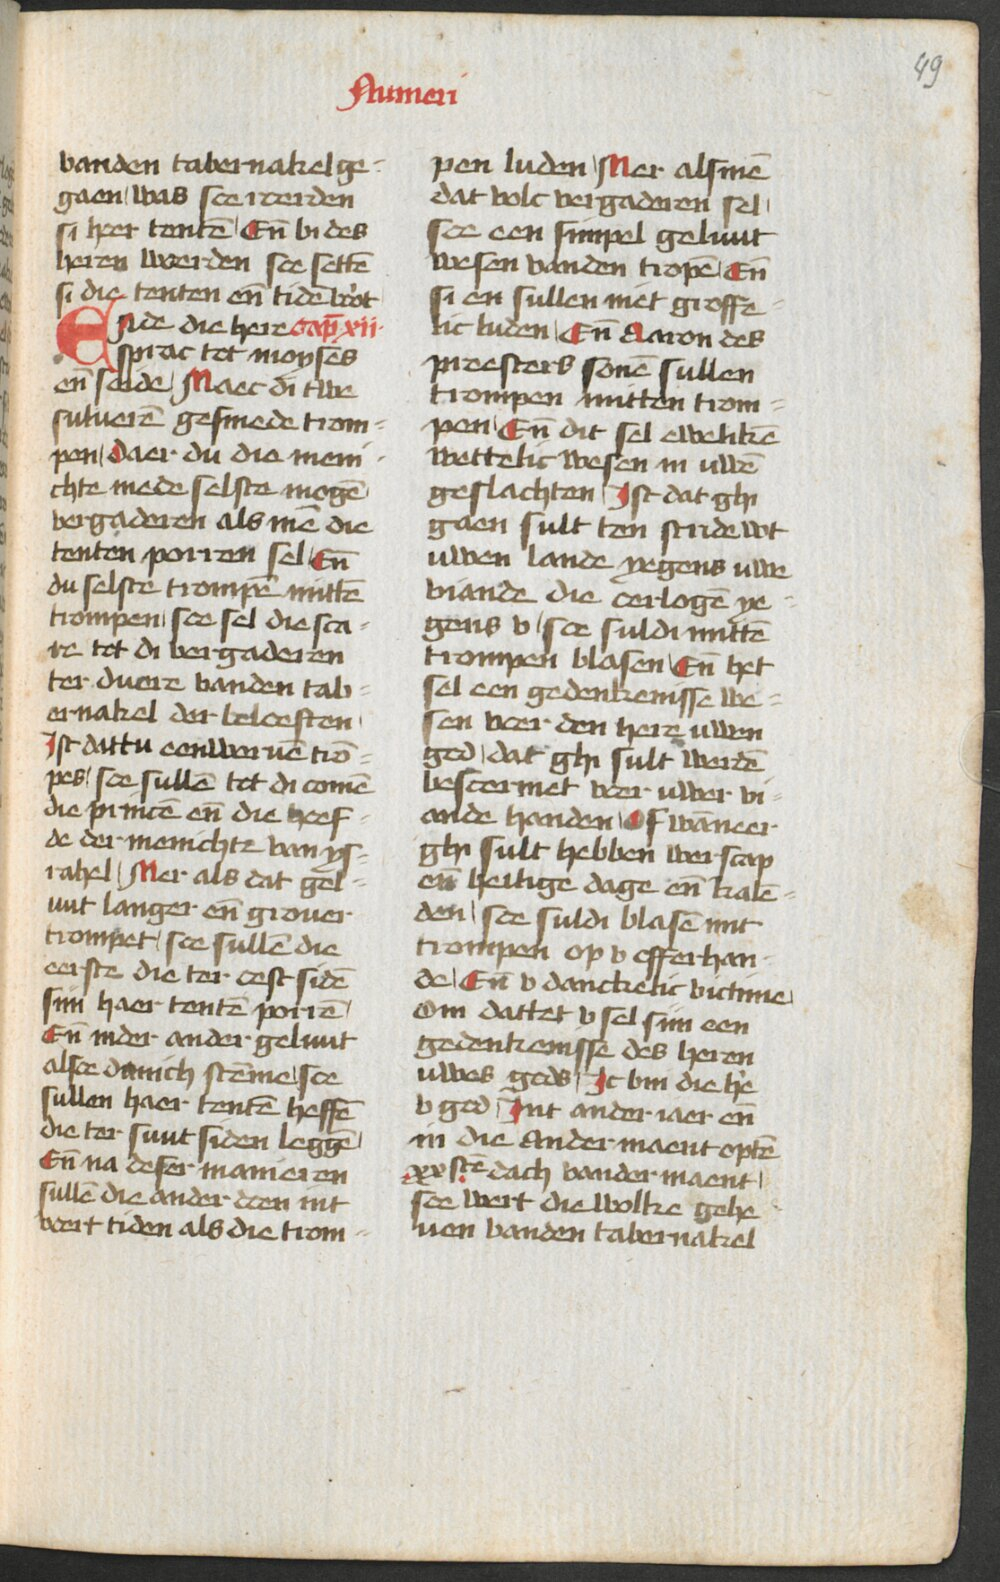 49
Numeri
vanden tabernakel ge-
gaen was soe reerden
si heer tentē En̄ bi des
heren woerden soe settē
si die tenten en̄ tidē vōt
Ende die here Cap̄ xii
sprac tot moyses
en̄ seide Maec di twe
suluerē gesmede trom-
pen Daer du die meni
chte mede selste mogē
vergaderen als mē die
tenten porren sel En̄
du selste trompē mittē
trompen soe sel die sca-
re tot di vergaderen
ter duere vanden tab-
ernakel der beloeften
Ist dattu eenweruē trō-
pes soe sullē tot di comē
die princē en̄ die hoef-
de der menichte van ys-
rahel Mer als dat gel-
uut langer en̄ grouer
trompet soe sullē die
eerste die ter oest sidē
siin haer tentē porrē
En̄ inder ander geluut
alsoe danich stēme soe
sullen haer tentē heffē
die ter suut siden leggē
En̄ na deser manieren
sullē die ander doen int
voert tiden als die trom-
pen luden Mer alsmē
dat volc vergaderen sel
soe een simpel geluut
wesen vanden tropē En̄
si en sullen niet groffe-
lic luden En̄ Aaron des
preesters sonē sullen
trompen mitten trom-
pen En̄ dit sel ewelikē
wettelic wesen in uwē
geslachten Ist dat ghi
gaen sult ten stride wt
uwen lande yegens uwe
viande die oerlogē ye-
gens v soe suldi mittē
trompen blasen En̄ het
sel een gedenkenisse we-
sen voer den here uwen
god dat ghi sult werdē
bescermet voer uwer vi-
ande handen Of wāneer
ghi sult hebben werscap
en̄ heilige dage en̄ kalē-
den soe suldi blasē mit
trompen op v offerhan-
de En̄ v danckelic victime
Om dattet v sel siin een
gedenkenisse des heren
uwes gods Ic bin die he
v god Int ander iaer en̄
in die Ander maent optē
xxstē dach vander maent
soe wert die wolke gehe
uen vanden tabernakel